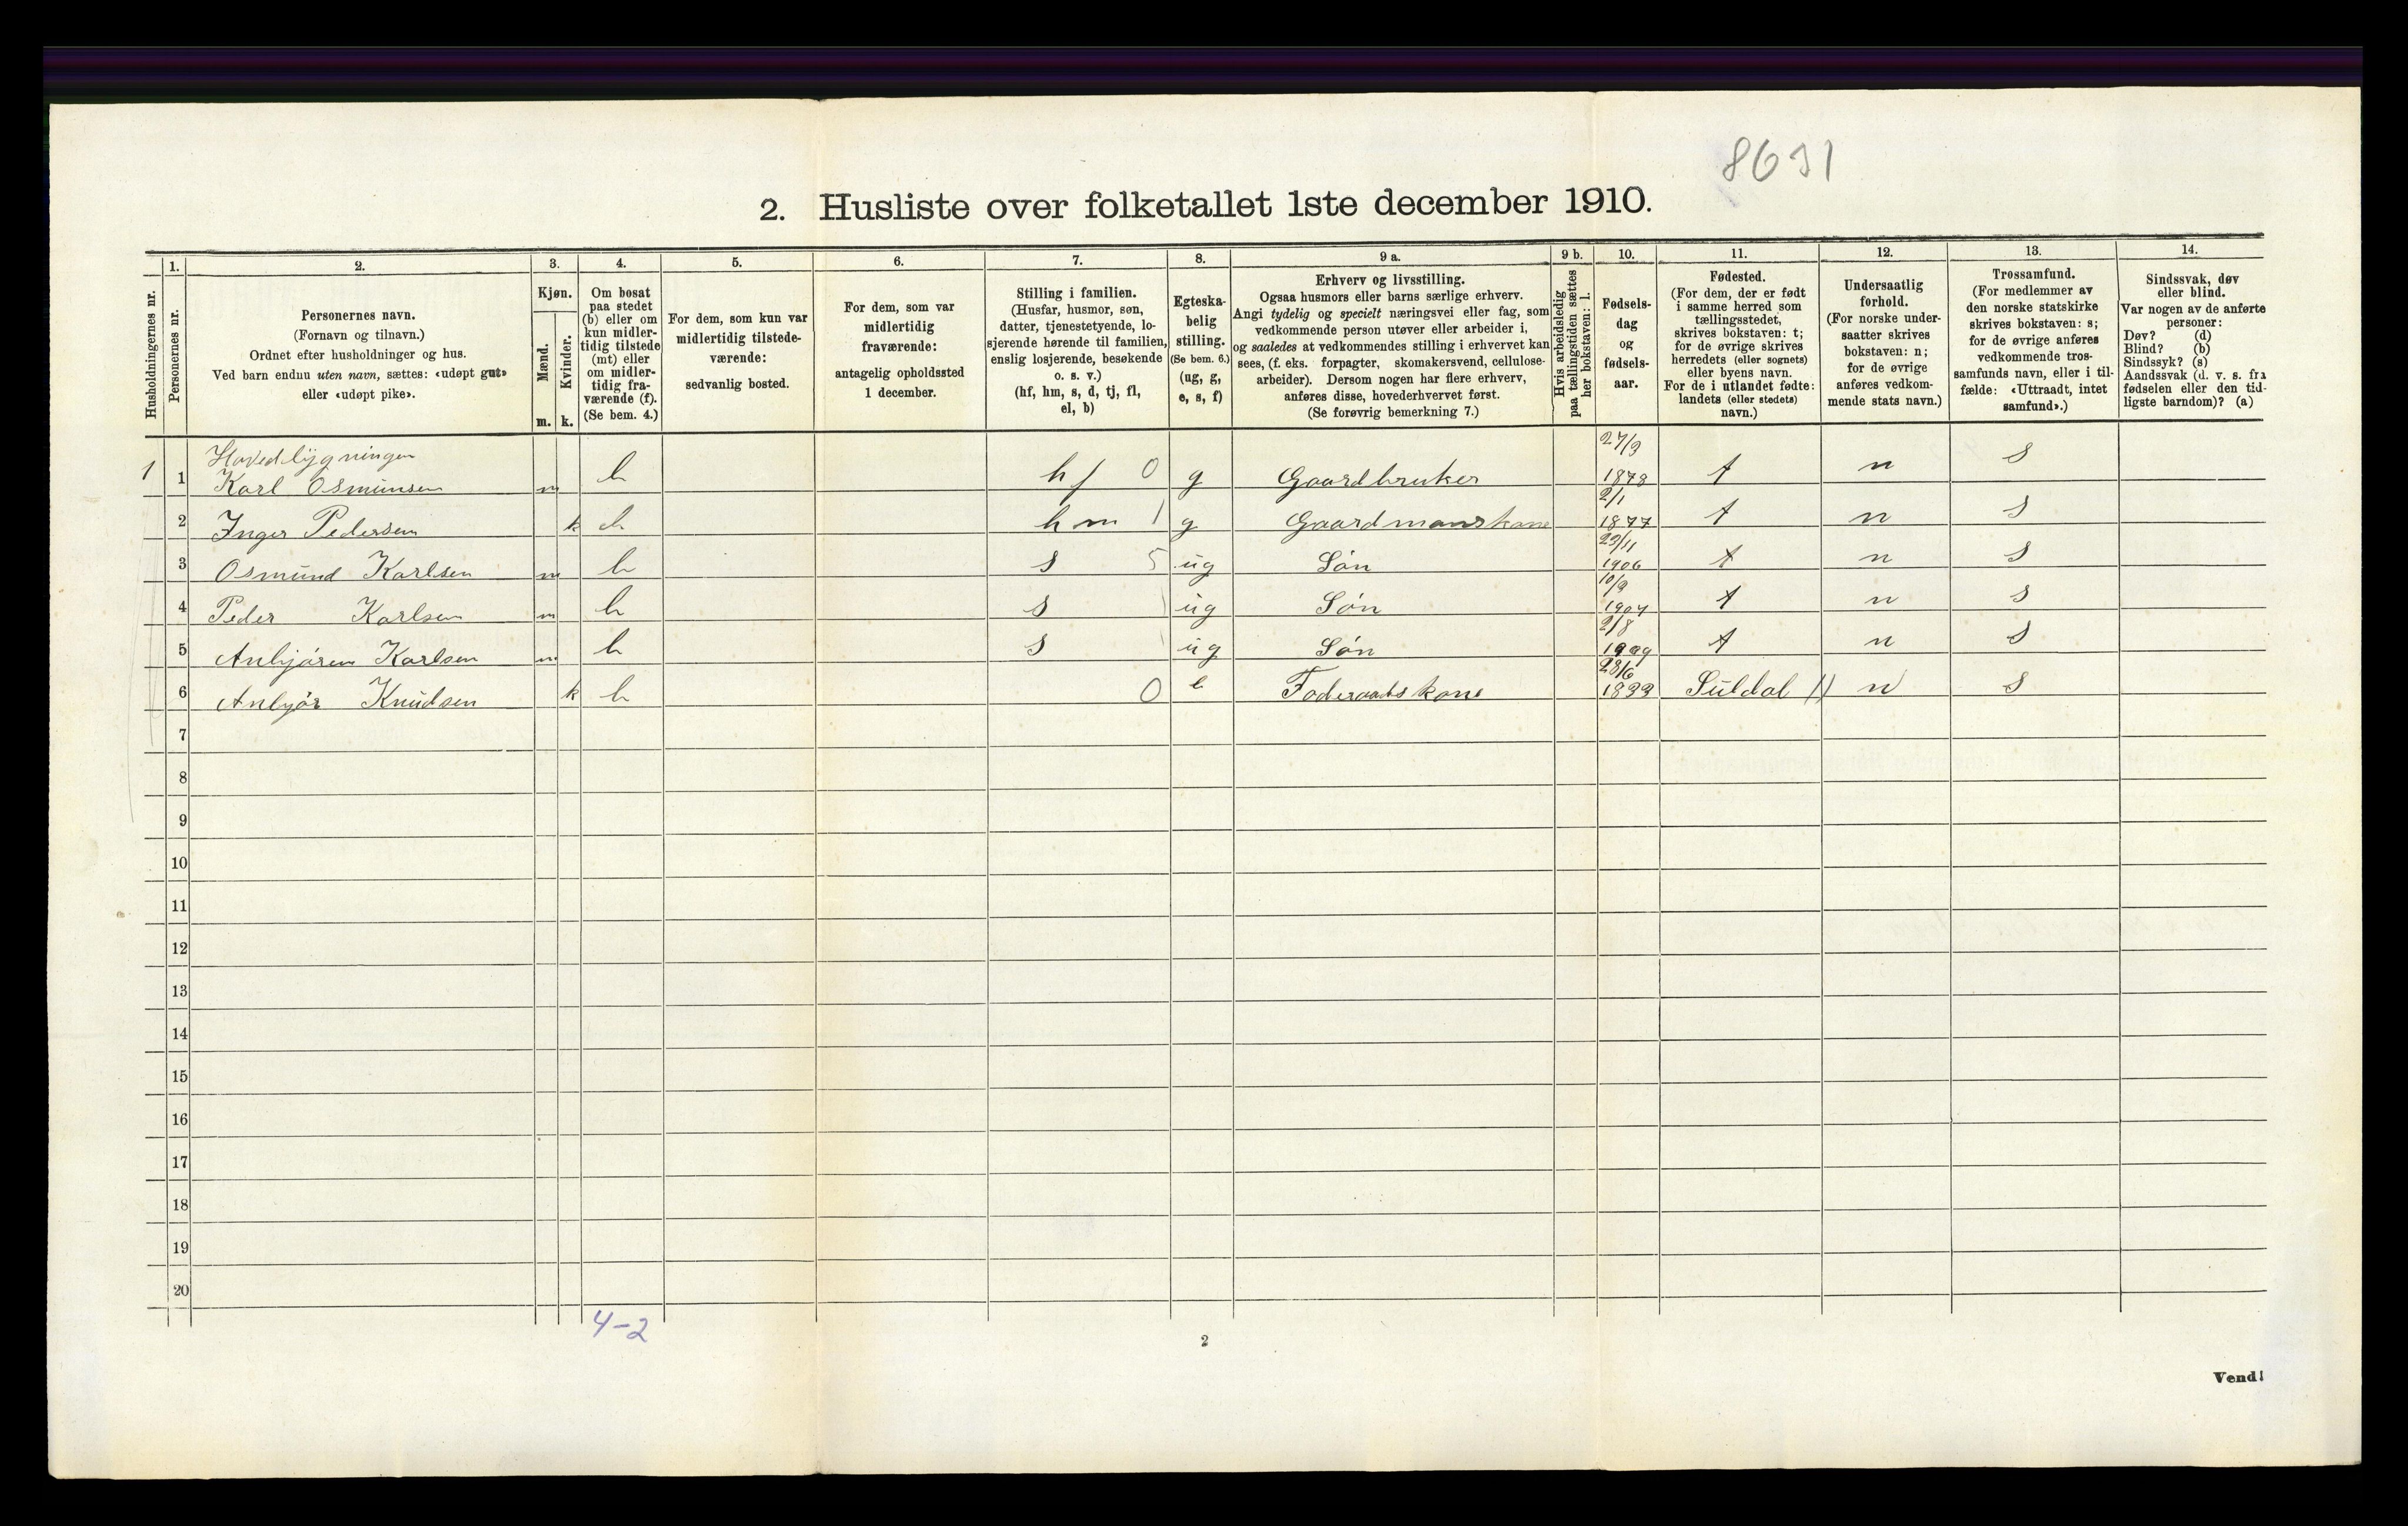 8631
2. Husliste over folketallet 1ste december 1910.
Husholdningernes nr.
1.
Personernes nr.
2.
Personernes navn.
(Fornavn og tilnavn.)
Ordnet efter husholdninger og hus.
Ved barn endnu uten navn, sættes: «udøpt gut»
eller «udøpt pike».
3.
Kjøn.
Mænd.
Kvinder.
m. k.
4.
Om bosat
paa stedet
(b) eller om
kun midler-
tidig tilstede
(mt) eller
om midler-
tidig fra-
værende (f).
(Se bem. 4.)
5.
For dem, som kun var
midlertidig tilstede-
værende:
sedvanlig bosted.
6.
For dem, som var
midlertidig
fraværende:
antagelig opholdssted
1 december.
7.
Stilling i familien.
(Husfar, husmor, søn,
datter, tjenestetyende, lo-
sjerende hørende til familien,
enslig losjerende, besøkende
o. s. v.)
(hf, hm, s, d, tj, fl,
el, b)
8.
Egteska-
belig
stilling.
(Se bem. 6.)
(ug, g,
e, s, f)
9 a.
Erhverv og livsstilling.
Ogsaa husmors eller barns særlige erhverv.
Angi tydelig og specielt næringsvei eller fag, som
vedkommende person utøver eller arbeider i,
og saaledes at vedkommendes stilling i erhvervet kan
sees, (f. eks. forpagter, skomakersvend, cellulose-
arbeider). Dersom nogen har flere erhverv,
anføres disse, hovederhvervet først.
(Se forøvrig bemerkning 7.)
9 b.
Hvis arbeidsledig
paa tællingstiden sættes
her bokstaven: l.
10.
Fødsels-
dag
og
fødsels-
aar.
11.
Fødested.
(For dem, der er født
i samme herred som
tællingsstedet,
skrives bokstaven: t;
for de øvrige skrives
herredets (eller sognets)
eller byens navn.
For de i utlandet fødte:
landets (eller stedets)
navn.)
12.
Undersaatlig
forhold.
(For norske under-
saatter skrives
bokstaven: n;
for de øvrige
anføres vedkom-
mende stats navn.)
13.
Trossamfund.
(For medlemmer av
den norske statskirke
skrives bokstaven: s;
for de øvrige anføres
vedkommende tros-
samfunds navn, eller i til-
fælde: «Uttraadt, intet
samfund».)
14.
Sindssvak, døv
eller blind.
Var nogen av de anførte
personer:
Døv? (d)
Blind? (b)
Sindssyk? (s)
Aandssvak (d. v. s. fra
fødselen eller den tid-
ligste barndom)? (a)
Hovedbygningen
1 1 Karl Osmunsen m b hf 0 g Gaardbruker 27/9 1878 t n s
2 Inger Pedersen k b hm 1 g Gaardmanskone 2/1 1877 t n s
3 Osmund Karlsen m b s 5 ug Søn 29/11 1906 t n s
4 Peder Karlsen m b s ug Søn 10/9 1907 t n s
5 Anbjøren Karlsen m b s ug Søn 2/8 1909 t n s
6 Anbjør Knudsen k b 0 e Foderaadskone 28/6 1833 Suldal 11 n s
7
8
9
10
11
12
13
14
15
16
17
18
19
20
4-2
2
Vend!